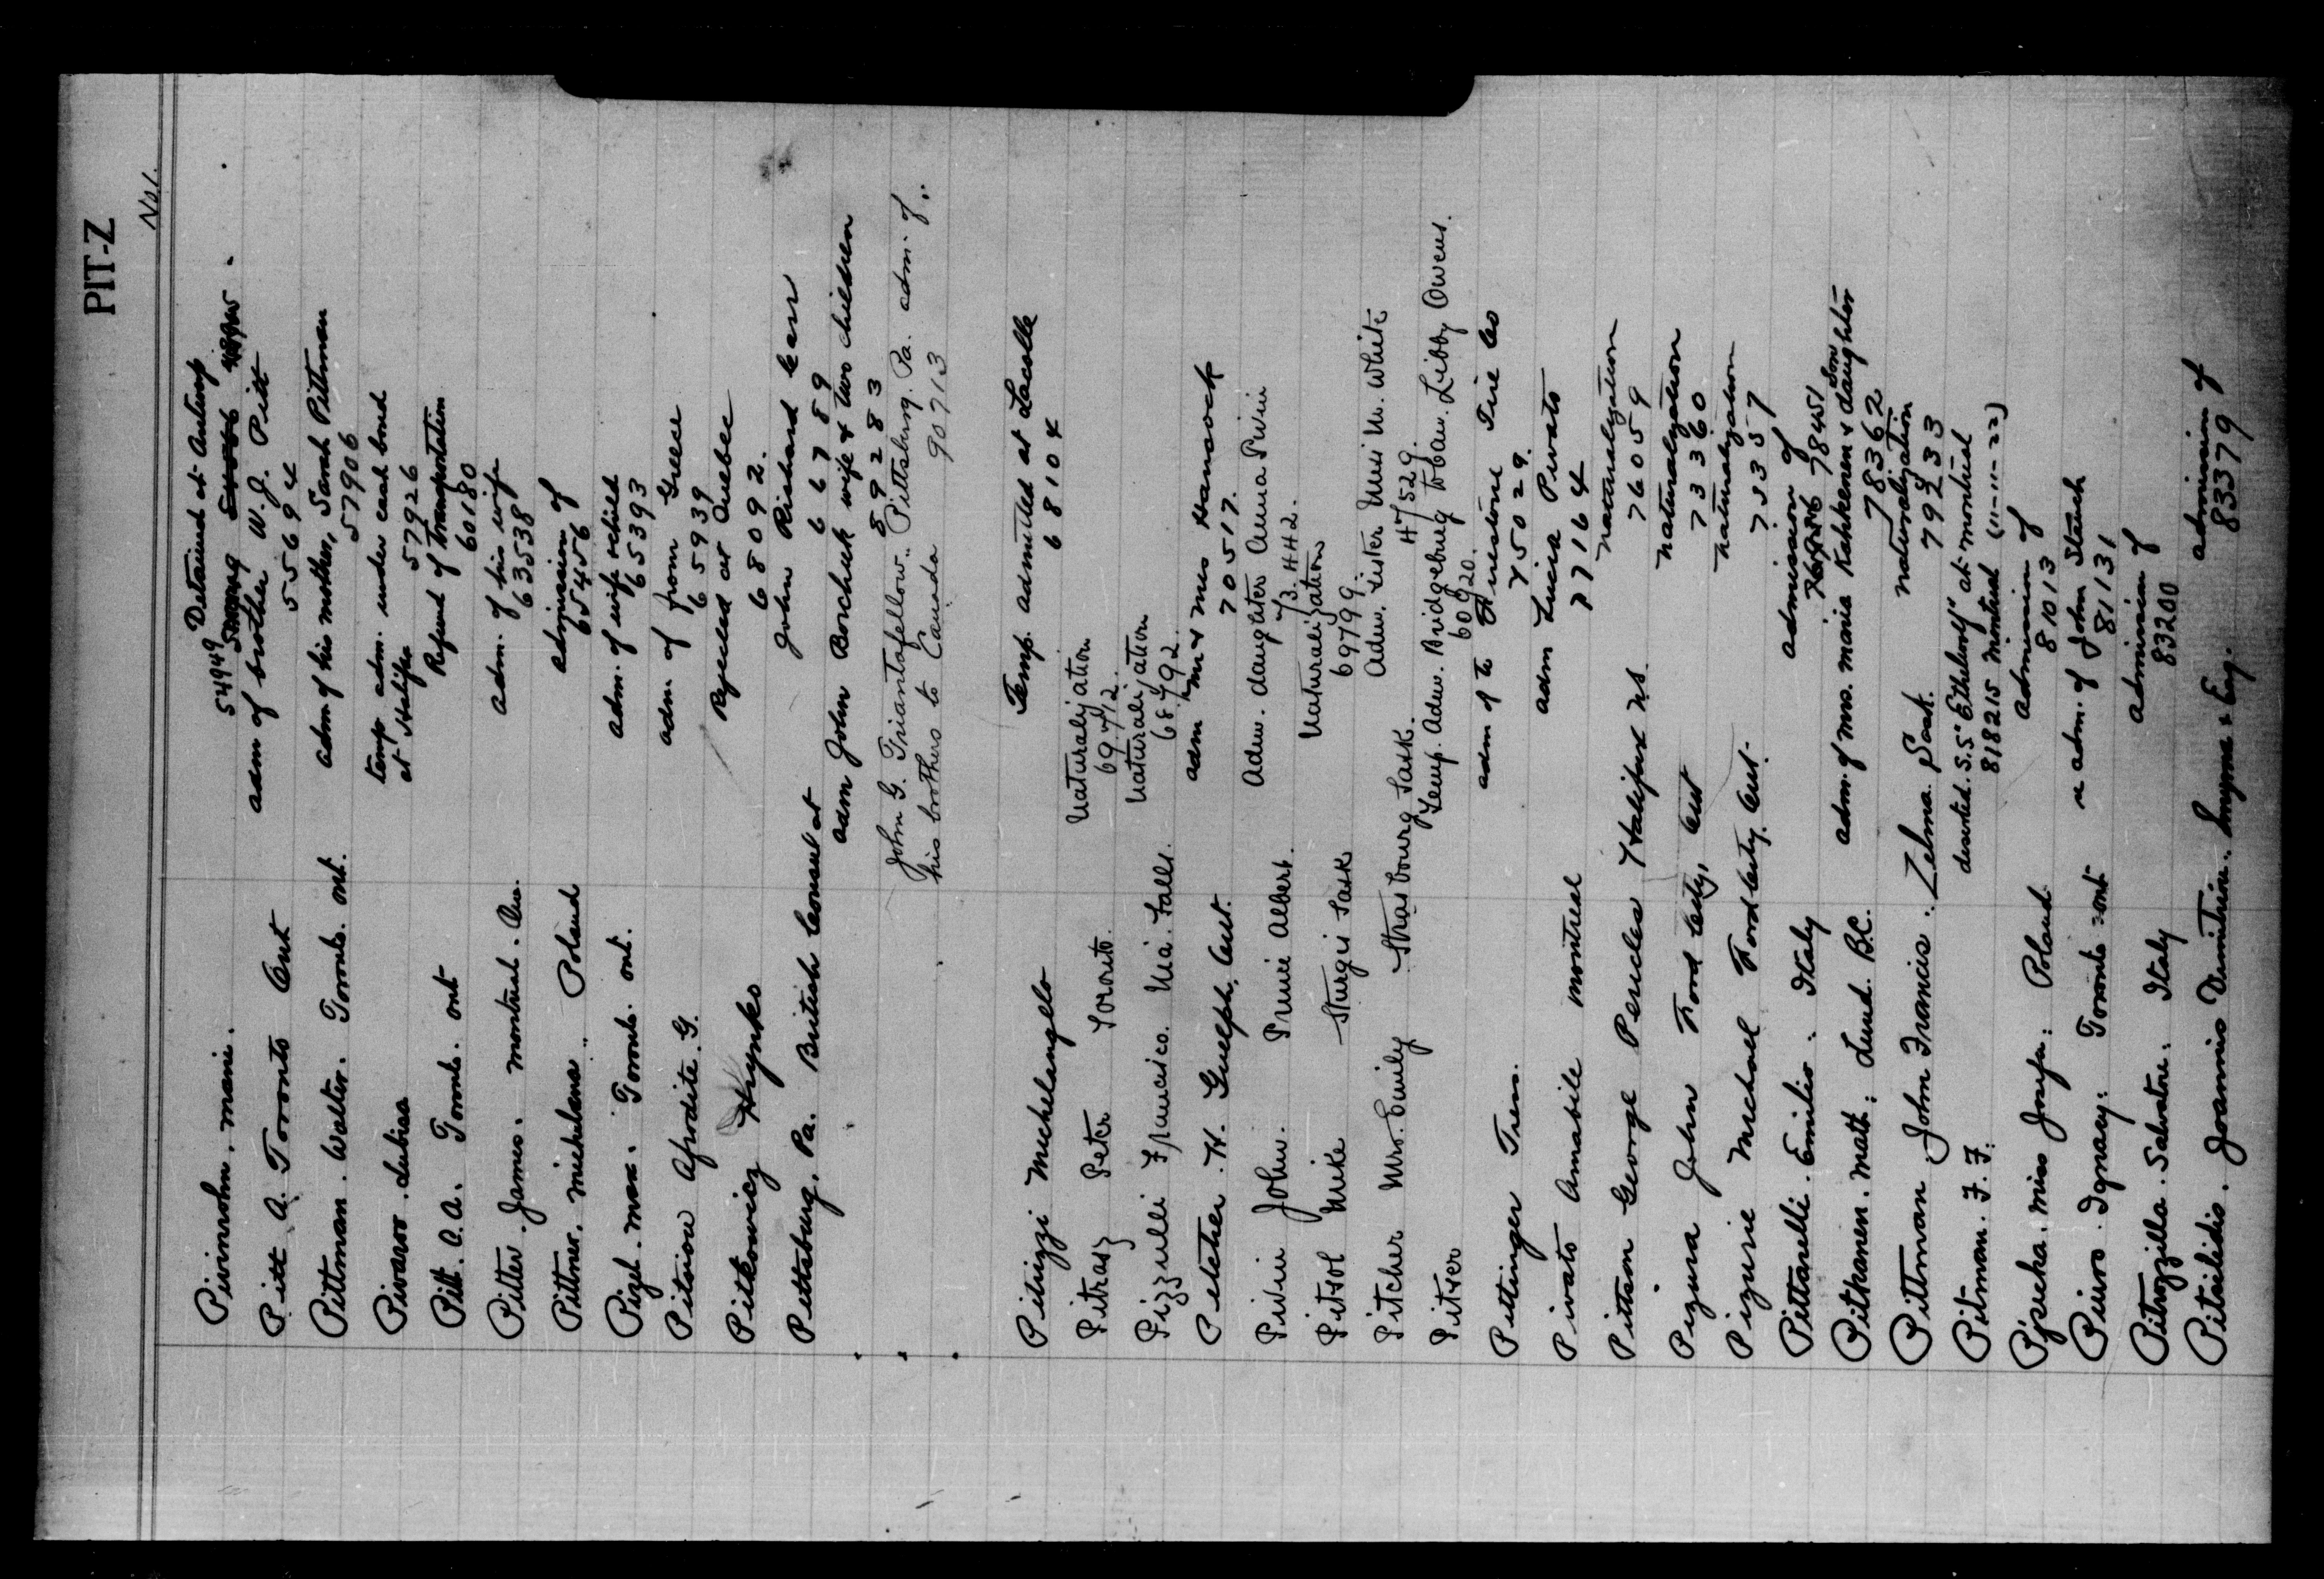 PIT-Z
No 1.
Detained at Antwerp
Pivinsohn. marie. 54949
Pitt A. Toronto Ont adm of brother W. J. Pitt
55694
Pittman. Walter. Toronto. Ont. adm of his mother, Sarah Pittman
57906
Pivaroo. Lubisa temp adm. under cash bond
at Halifax 57926
Pitt. A. A. Toronto. Ont Refund of Transportation
60180
Pitter. James. Montreal. Que. adm. of his wife
63538
Pittner. Michelana. Poland admission of
65456
Pizel. Max. Toronto. Ont. adm. of wife & child
65393
Pitsiou Afrodite. G. adm. of from Greece
65939
Pitkowicz Hrynko Rejected at Quebec
68092.
Pittsburg, Pa. British Consul at John Richard
66789
" adm John Borchuk wife & two children
89283
" John G. Triantafellow.. Pittsburg. Pa. adm. of..
" his brothers to Canada 90713
Pitrizzi Michelangelo Temp. admitted at Lacolle
68104
Pitrasz Peter Toronto. Naturalization
69712.
Pizzulli Francisco. Nia. Falls. Naturalization
68792.
Petcher. H. Guelph, Ont. adm Mr & Mrs Hancock
70517.
Pivin John. Prince Albert. Adm. daughter Anna Pivin
73442.
Pitsol Mike Sturgis Sask Naturalization
69799.
Pitcher Mrs. Emily Strasbourg Sask. Adm. sister Miss M. White
47529.
Pitser Temp. Adm. Bridgeburg Libby Owens.
60920.
Pittinger Tren. adm of to Firestone Tire Co
75029.
Pivato Amabile Montreal adm Lucia Pivato
77164
Pittson George Pericles Halifax N.S. Naturalization
76059
Pizura John Ford City, Ont Naturalization
73360
Pizurie Michael Ford City, Ont. Naturalization
73357
Pittarelli. Emilio. Italy admission of
78451
Pitkanen. Matt: Lund. B.C. adm. of Mrs. Maria Kahkonen & son daughter
78362
Pittman John Francis. Zelma. Sask. Naturalization
79233
Pitman. F. F. deserted. S.S. "Ethelwolf" at Montreal
818215 Montreal (11-11-22)
Pjrecha. Miss Jozefa: Poland admission of
81013
Piuro. Ignacy: Toronto Ont adm. of John Stanek
81131
Pitrozzilla. Salvatore. Italy admission of
83200
Pitsilidis. Joannis Dimitriu. Smyrna & Eng. admission of
83379